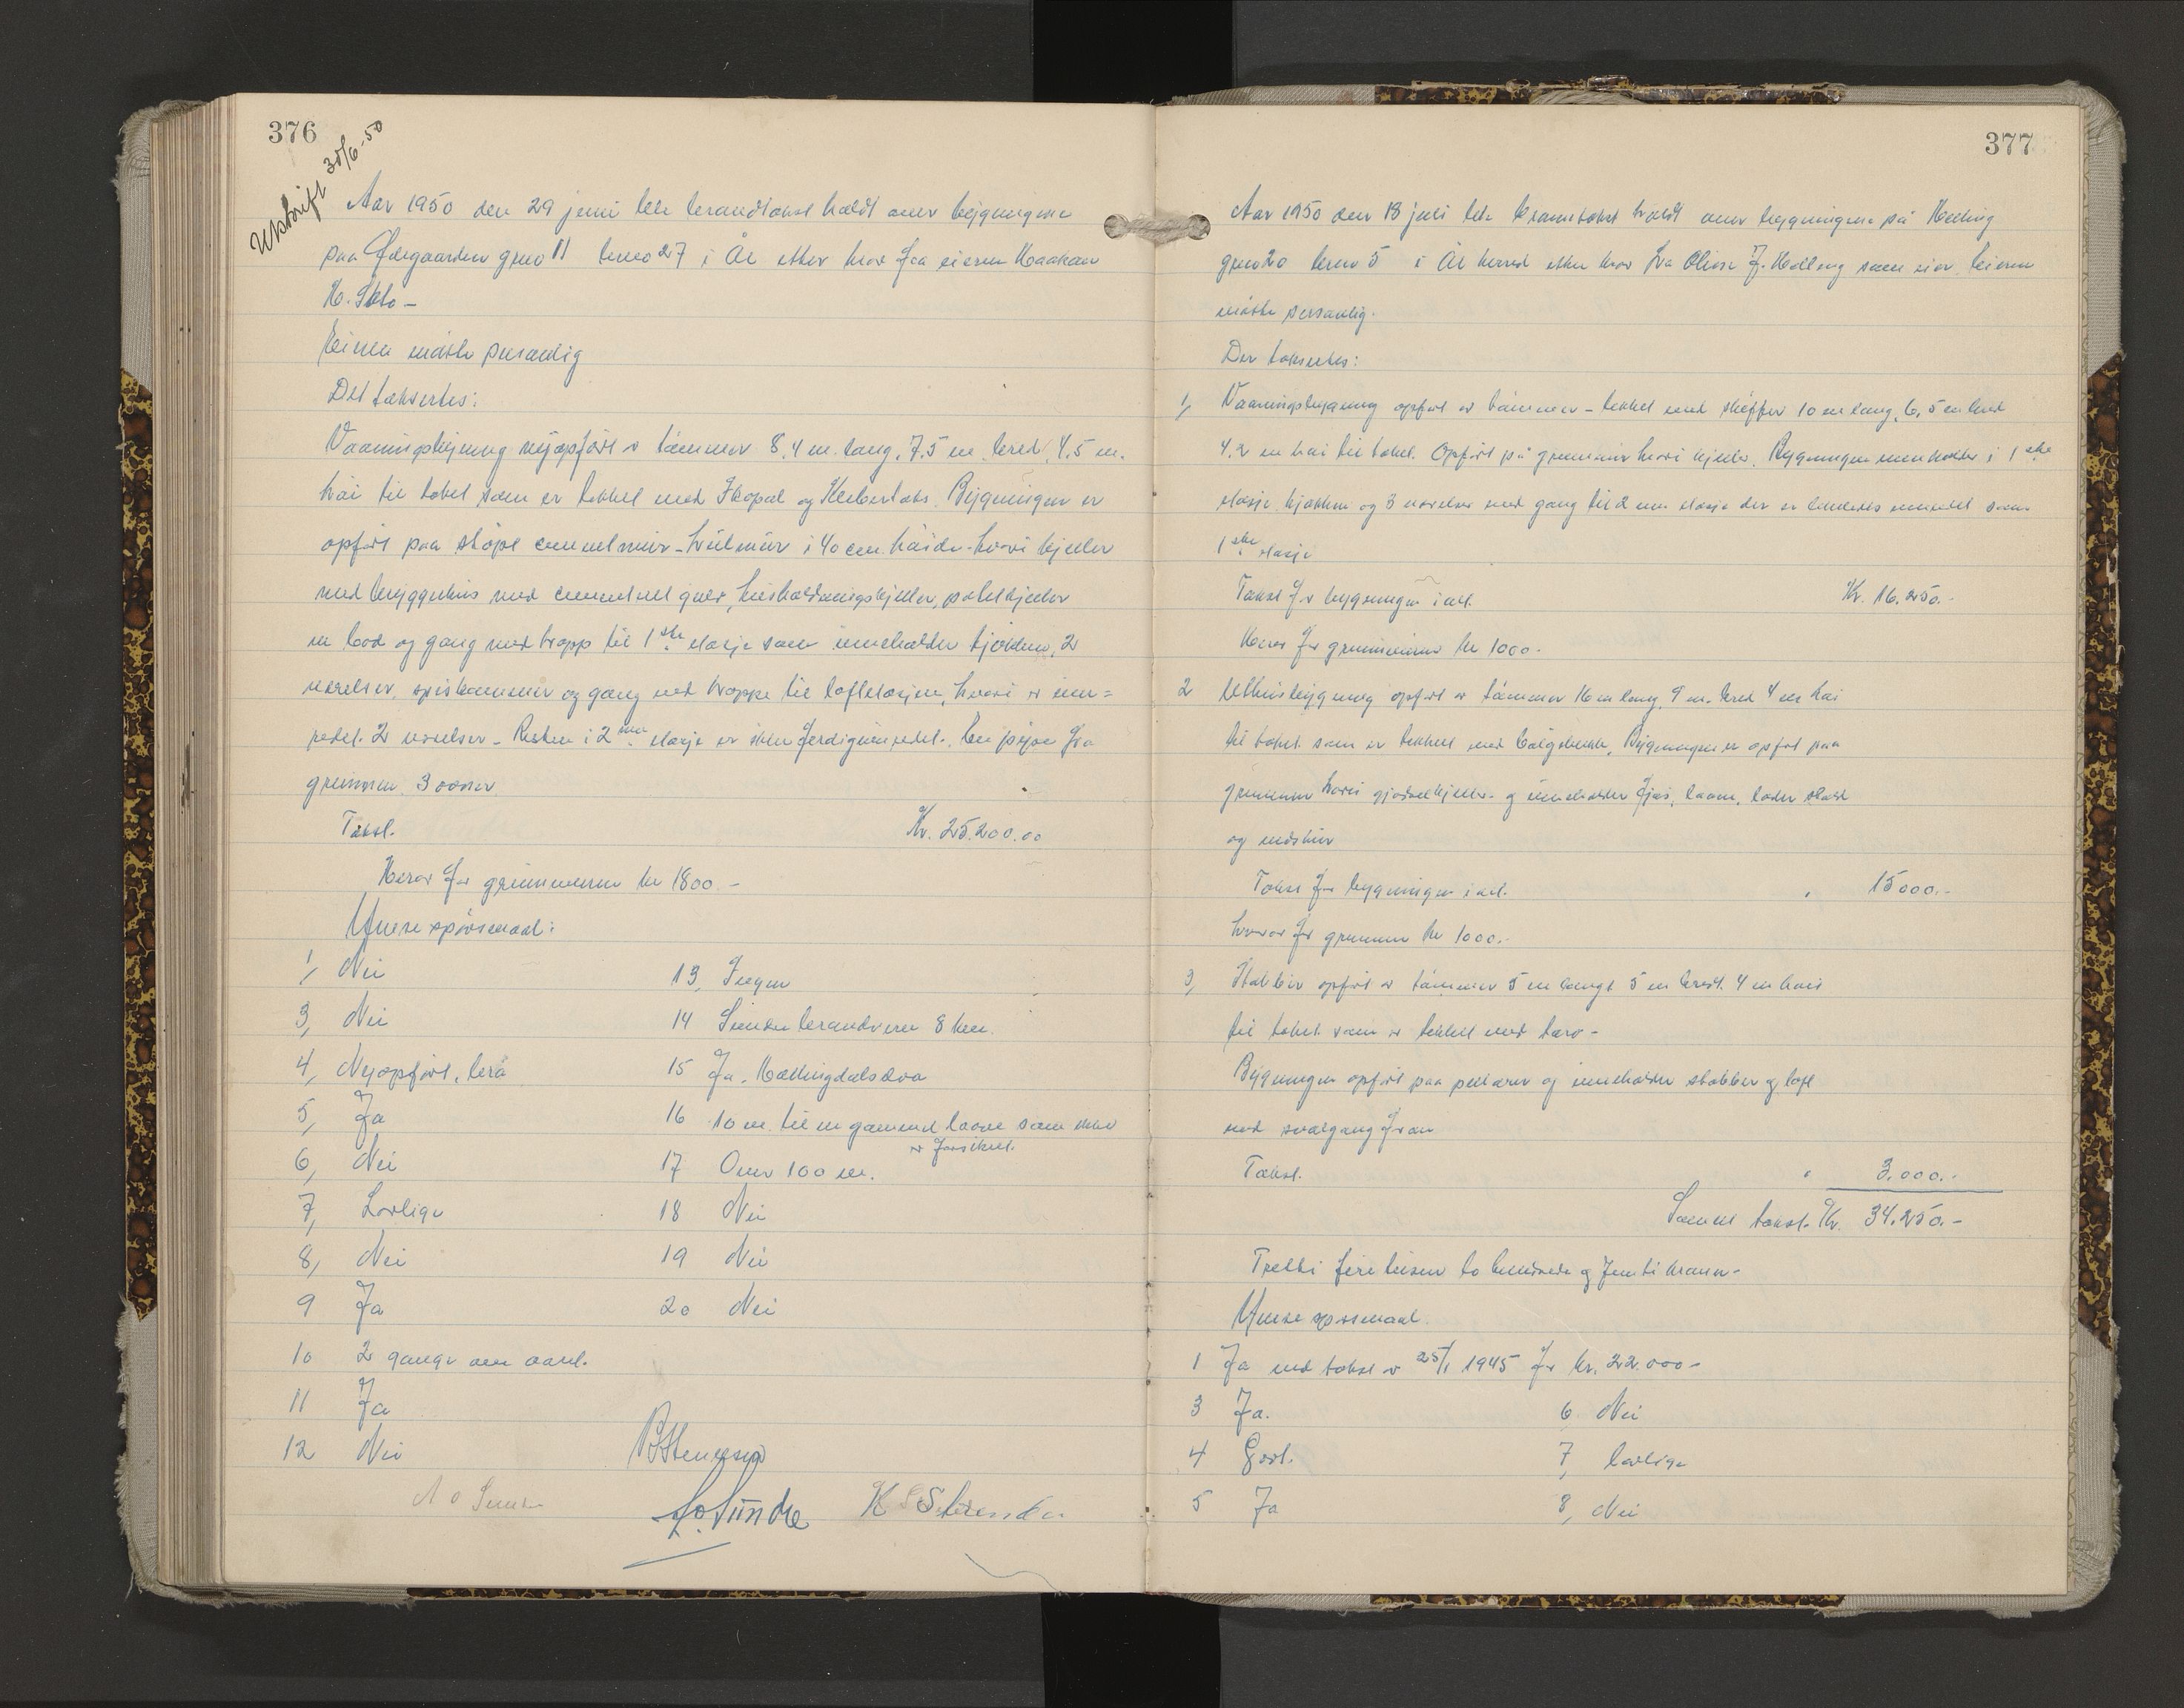 376
Utskrift 30/6-50
Aar 1950 den 29 juni ble brandtakst holdt over bygningene
paa Ødegaarden gno 11 bno 27 i Ål etter krav fra eieren Haakon
Eieren møtte personlig
Det taksertes:
Vaaningsbygning nyopført av tømmer 8,4 m lang, 7.5 m bred, 4,5 m.
høi til taket som er tekket med Ikopal og Bygningen er
opført paa støpt cementmur - hulmur i 40 cm. høide - hvori kjeller
med bryggerhus med cementert gulv, husholdningskjeller, potetkjeller
en bod og gang med trapp til 1ste etasje som inneholder kjøkken, 2
værelser, spiskammer og gang med trappe til loftetasjen, hvori er inn=
redet 2 værelser - Resten i 2nen etasje er ikke ferdiginnredet. En pipe fra
grunnen 3 ovner
Takst. Kr. 25.200.00
Herav for grunnmuren kr 1800 -
Umse spørsmaal:
1, Nei 13, Ingen
3, Nei 14 brandvern 8 km.
4, Nyopført, bra 15 Ja, Hallingdalselva
5, Ja 16 10 m. til en gammel laave som ikke
er forsikret.
6, Nei 17 Over 100 m.
7, Lovlige 18 Nei
8, Nei 19 Nei
9 Ja 20 Nei
10 2 ganger om aaret.
11 Ja
12 Nei
377
Aar 1950 den 13 juli ble branntakst holdt over bygningene på Holling
gno 20 bno 5 i Ål herred etter krav fra J. Holling som eier. Eieren
møtte personlig.
Der taksertes:
1, Vaaningsbygning opført av tømmer - tekket med skiffer 10 m lang, 6,5 m bred
4,2 m høi til taket. Opført på grunnmur hvori kjeller. Bygningen inneholder i 1ste
etasje kjøkken og 3 værelser med gang til 2nen etasje der er likeledes innredet som
1ste etasje
Takst for bygningen i alt. Kr. 16.250.-
Herav for grunnmuren kr 1000.-
2 Uthusbygning opført av tømmer 16 m lang, 9 m. bred 4 m høi
til taket som er tekket med bølgeblikk, Bygningen er opført paa
grunnmur hvori gjødselkjeller og inneholder fjøs, laave, lader stald
og vedskur
Takst for bygningen i alt. " 15000.-
hvorav for grunnmur kr 1000.-
3, Stabbur opført av tømmer 5 m langt 5 m bredt 4 m høit
til taket som er tekket med torv -
Bygningen opført paa pillarer og inneholder stabbur og loft
med svalgang foran
Takst. " 3.000.-
Samlet takst. Kr. 34.250.-
Tretti fire tusen to hundrede og femti kroner -
Umse spørsmaal.
1 Ja med takst av 25/1 1945 for kr. 22.000 -
3 Ja. 6 Nei
4 Godt. 7, Lovlige
5 Ja 8, Nei